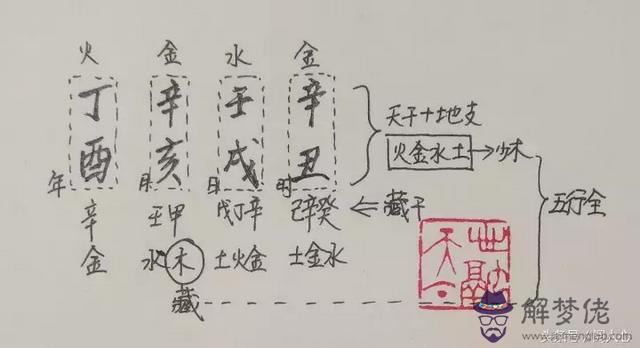 火 金 水 金
丁 辛 壬 辛
天干+地支
酉 亥 戌 丑
火金水土→少木
年 月 日 时
五行全
辛 壬甲 戊丁辛 己辛癸 ⇐ 藏干
金 水木 土火金 土金水
藏
解梦佬
www.jiemenglao.com